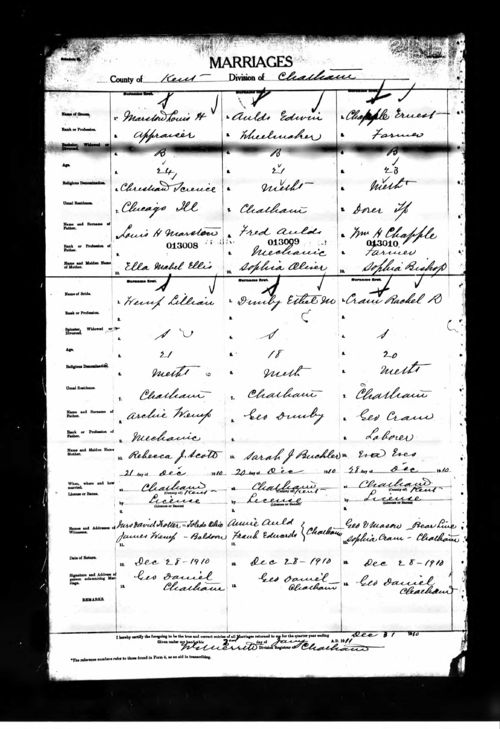 MARRIAGES
County of Kent Division of Chatham
Name of Groom. Marston Louis H Aulds Edwin Chapple Ernest
Rank or Profession. Appraiser Wheelmaker Farmer
B B B
Age. 24 21 23
Religious Denomination. Christian Science Meth Meth
Usual Residence. Chicago Ill Chatham Dover Tp
Name and Surname of Father. Louis H Marston Fred Aulds Wm H Chapple
013008 013009 013010
Rank or Profession of Father. Mechanic Farmer
Name and Maiden Name of Mother. Ella Mabel Ellis Sophia Oliver Sophia Bishop
Name of Bride. Hemp Lillian Dumby Ethel M Cram Rachel R
Rank or Profession.
Spinster, Widowed or Divorced. S S S
Age. 21 18 20
Religious Denomination. Meth Meth Meth
Usual Residence. Chatham Chatham Chatham
Name and Surname of Father. Archie Hemp Geo Dumby Geo Cram
Rank or Profession of Father. Mechanic Laborer
Name and Maiden Name of Mother. Rebecca J. Scott Sarah J Buchler Eva Eves
21 Dec 1910 20 Dec 1910 28 Dec 1910
When, where and how married. Chatham Chatham Chatham
County of Kent County of Kent County of Kent
License or Banns. License License License
Names and Addresses of Witnesses. Mrs David Kotter - Toledo Ohio Annie Auld Geo V Mason Bear Line
James Hemp - Baldoon Frank Edwards Chatham Sophia Cram - Chatham
Date of Return. Dec 28 - 1910 Dec 28 - 1910 Dec 28 - 1910
Signature and Address of person solemnizing Marriage. Geo Daniel Geo Daniel Geo Daniel
Chatham Chatham Chatham
REMARKS
I hereby certify the foregoing to be the true and correct entries of all Marriages returned to me for the quarter year ending Dec 31 1910
Given under my hand this 2nd day of Jany A.D. 1911
Division Registrar of Chatham
*The reference numbers refer to those found in Form 6, as no aid in transcribing.